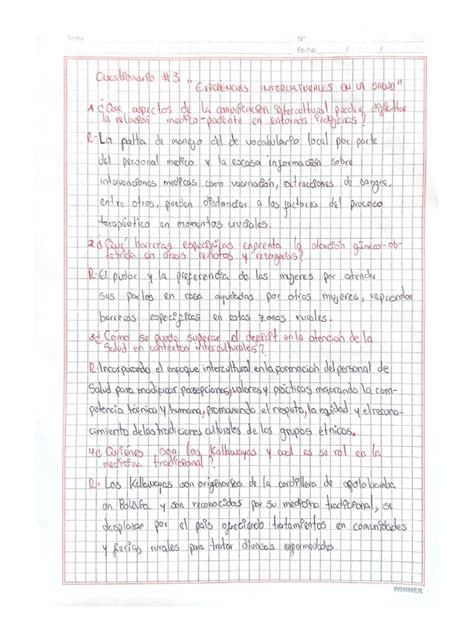 Tema
Nº
Fecha / /
Cuestionario #3 "EXPERIENCIAS INTERCULTURALES EN LA SALUD"
1 ¿Que aspectos de la comunicación intercultural pueden dificultar
la relación medico-paciente en entornos indigenas?
R.- La falta de manejo del de vocabulario local por parte
del personal medico y la escasa información sobre
intervenciones medicas como vacunación, extracciones de sangre,
entre otros, pueden distanciar a los factores del proceso
terapéutico en momentos cruciales.
2 ¿Qué barreras especificas enfrenta la atención gineco-ob-
tetrica en areas remotas y rezagadas?
R.- El pudor y la preferencia de las mujeres por atender
sus partos en casa ayudadas por otras mujeres, representan
barreras especificas en estas zonas rurales.
3 ¿Cómo se puede superar el deficit en la atencion de la
Salud en contextos interculturales?
R. Incorporando el enfoque intercultural en la formación del personal de
Salud para modificar percepciones, valores y prácticas, mejorando la com-
petencia técnica y humana, promoviendo el respeto, la equidad y el recono-
cimiento de las tradiciones culturales de los grupos étnicos.
4 ¿Quiénes son los Kallawayas y cual es su rol en la
medicina tradicional?
R.- Los Kallawayas son originarios de la cordillera de apolobamba
en Bolivia y son reconocidos por su medicina tradicional, se
desplazan por el país ofreciendo tratamientos en comunidades
y ferias rurales para tratar diversas enfermedades.
WINNER